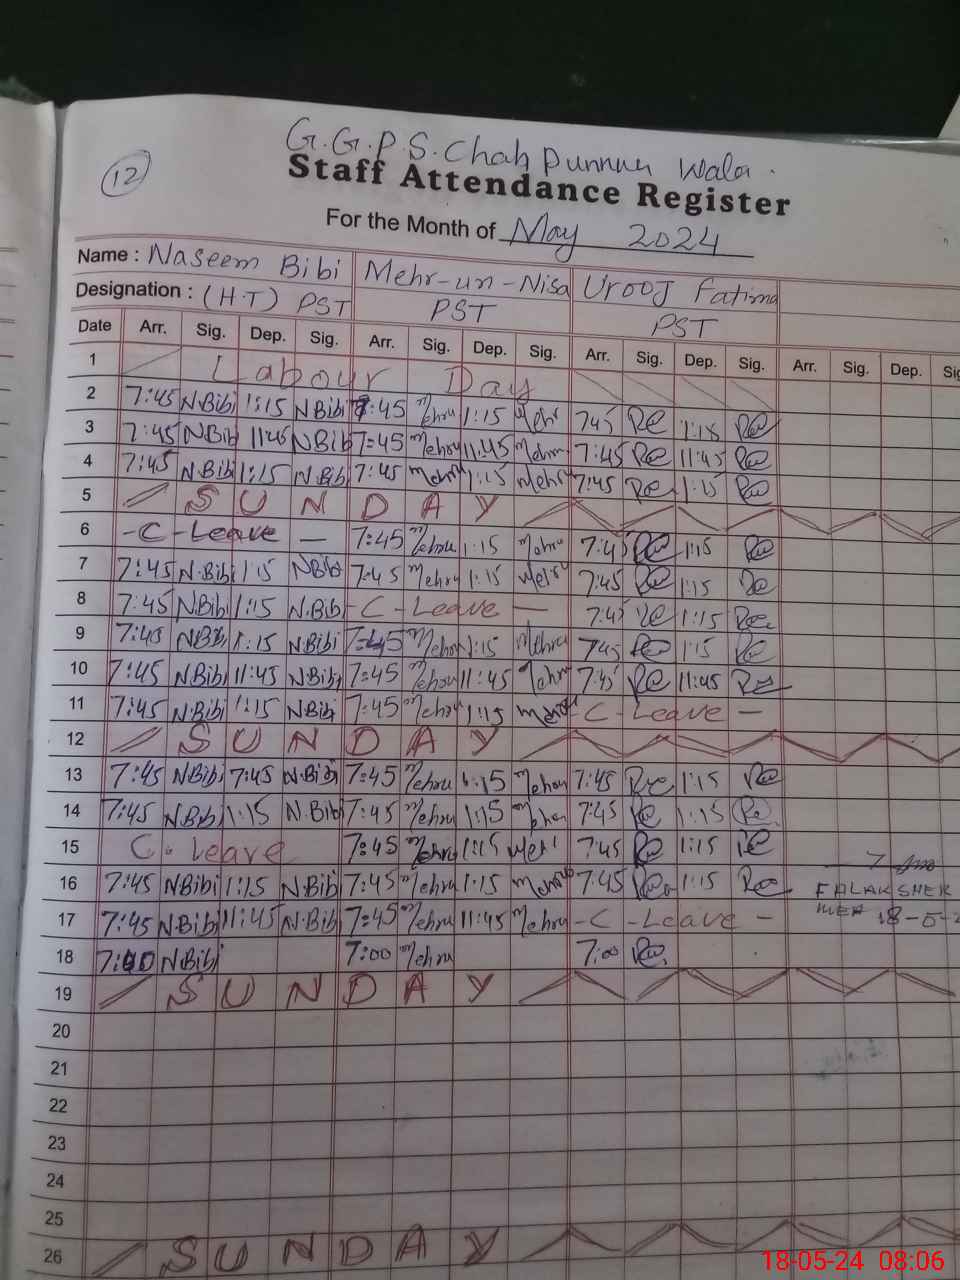 12
G.G.P.S. Chah Punnun Wala.
Staff Attendance Register
For the Month of May 2024
Name : Naseem Bibi Mehr-un-Nisa Urooj Fatima
Designation : (H.T) PST PST PST
Date Arr. Sig. Dep. Sig. Arr. Sig. Dep. Sig. Arr. Sig. Dep. Sig. Arr. Sig. Dep.
1 Labour Day
2 7:45 N.Bibi 1:15 N.Bibi 7:45 Mehru 1:15 Mehr 745 1:15
3 7:45 N.Bibi 11:45 N.Bibi 7:45 Mehru 11:45 Mehru 7:45 11:45
4 7:45 N.Bibi 1:15 N.Bibi 7:45 Mehru 1:15 Mehr 7:45 1:15
5 SUNDAY
6 -C-Leave - 7:45 Mehru 1:15 Mehru 7:45 1:15
7 7:45 N.Bibi 1:15 N.Bibi 7:45 Mehru 1:15 7:45 1:15
8 7:45 N.Bibi 1:15 N.Bibi -C-Leave - 7:45 1:15
9 7:45 N.Bibi 1:15 N.Bibi 7:45 Mehru 1:15 Mehru 745 1:15
10 7:45 N.Bibi 11:45 N.Bibi 7:45 Mehru 11:45 Mehru 7:45 11:45
11 7:45 N.Bibi 1:15 N.Bibi 7:45 Mehru 1:15 Mehru C-Leave -
12 SUNDAY
13 7:45 N.Bibi 7:45 N.Bibi 7:45 Mehru 1:15 Mehru 7:45 1:15
14 7:45 N.Bibi 1:15 N.Bibi 7:45 Mehru 1:15 7:45 1:15
15 C. Leave 7:45 Mehru 1:15 Mehr 7:45 1:15
16 7:45 N.Bibi 1:15 N.Bibi 7:45 Mehru 1:15 Mehru 7:45 1:15
FALAKSHER
17 7:45 N.Bibi 11:45 N.Bibi 7:45 Mehru 11:45 Mehru -C-Leave -
18 N.Bibi 7:00 Mehru 7:00
19 SUNDAY
20
21
22
23
24
25
26 SUNDAY
18-05-24 08:06